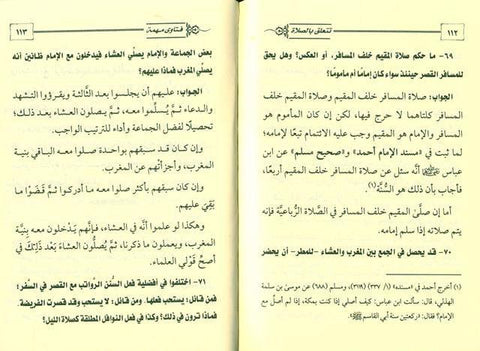 ١١٢
تتعلق بالصلاة
٦٩- ما حكم صلاة المقيم خلف المسافر، أو العكس؟ وهل يحق
للمسافر القصر حينئذ سواء كان إمامًا أم مأمومًا؟
الجواب: صلاة المسافر خلف المقيم وصلاة المقيم خلف
المسافر كلتاهما لا حرج فيها، لكن إن كان المأموم هو
المسافر والإمام هو المقيم وجب عليه الائتمام تبعًا لإمامه؛
لما ثبت في «مسند الإمام أحمد» و«صحيح مسلم» عن ابن
عباس أنه سئل عن صلاة المسافر خلف المقيم أربعًا،
فأجاب بأن ذلك هو السُّنَّة(١).
أما إن صلَّى المقيم خلف المسافر في الصَّلاة الرُّباعيَّة فإنه
يتم صلاته إذا سلم إمامه.
٧٠- قد يحصل في الجمع بين المغرب والعشاء -للمطر- أن يحضر
(١) أخرجه أحمد في «مسنده» (١/ ٣٣٧) (٣١١٩)، ومسلم (٦٨٨) عن موسى بن سلمة
الهذلي، قال: سألت ابن عباس: كيف أصلي إذا كنت بمكة، إذا لم أصل مع
الإمام؟ فقال: «ركعتين سنة أبي القاسم ﷺ».
فتاوى مهمة
١١٣
بعض الجماعة والإمام يصلّي العشاء فيدخلون مع الإمام ظانين أنه
يصلّي المغرب فماذا عليهم؟
الجواب: عليهم أن يجلسوا بعد الثالثة ويقرؤوا التشهد
والدعاء ثم يُسلِّموا معه، ثمَّ يصلون العشاء بعد ذلك؛
تحصيلًا لفضل الجماعة وأداء للترتيب الواجب.
وإن كان سبقهم بواحدة صلوا معه الباقي بنية
المغرب، وأجزأتهم عن المغرب.
وإن كان سبقهم بأكثر صلوا معه ما أدركوا ثم قَضَوْا ما
بَقِيَ عليهم.
وهكذا لو علموا أنَّه في العشاء، فإنَّهم يدْخلون معه بنيَّة
المغرب، ويعملون ما ذكرنا، ثمَّ يُصلُّون العشاءَ بعد ذَلِكَ في
أصحِّ قَوْلَي العلماء.
٧١- اختلفوا في أفضلية فعل السُّنن الرَّواتب مع القصر في السَّفر؛
فمن قائل: يستحب فعلها. ومن قائل: لا يستحب وقد قصرت الفريضة.
فماذا ترون في ذلك؟ وكذا في فعل النوافل المطلقة كصلاة الليل؟